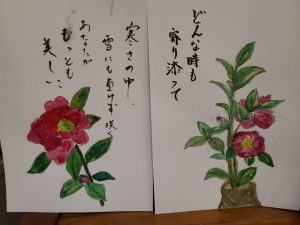 どんな時も
寄り添って
寒さの中、
雪にも負けず咲く
あなたが
もっとも
美しい